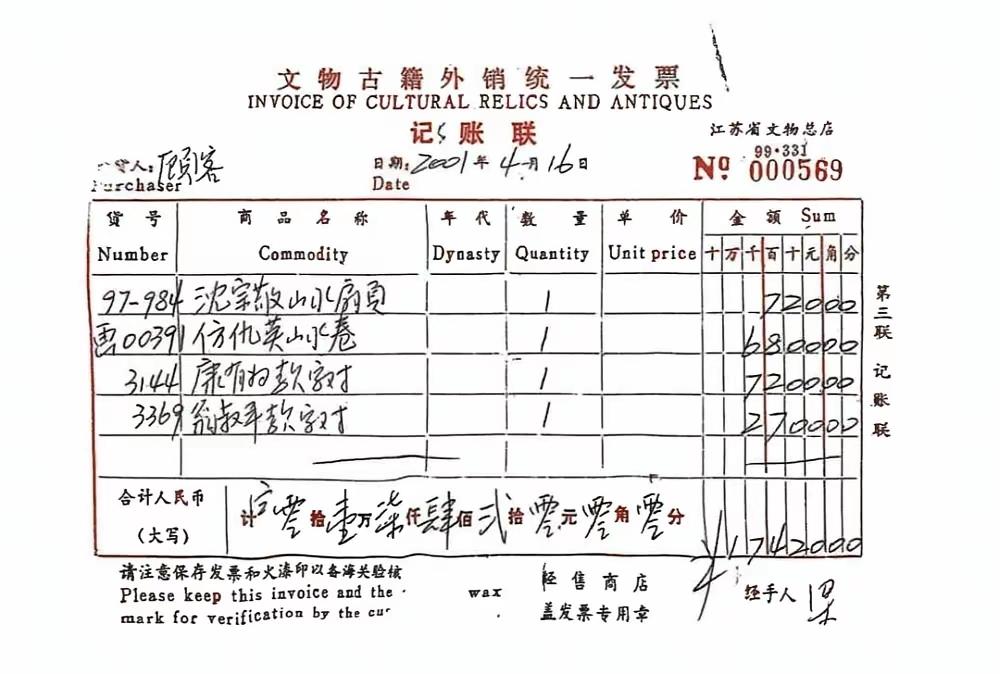 文物古籍外销统一发票
INVOICE OF CULTURAL RELICS AND ANTIQUES
记账联
江苏省文物总店
99·331
货人：顾客 日期：2001年4月16日 Nº 000569
Purchaser Date
货号 商品名称 年代 数量 单价 金额 Sum
Number Commodity Dynasty Quantity Unit price 十万千百十元角分
97-984 沈宗敬山水扇頁 1 72000
画00391 仿仇英山水卷 1 680000
3144 康有为款字对 1 720000
3369 翁叔平款字对 1 270000
第三联 记账联
合计人民币（大写） 计零拾壹万柒仟肆佰贰拾零元零角零分 ¥1742000
请注意保存发票和火漆印以备海关验核
Please keep this invoice and the wax
mark for verification by the cu
经售商店
盖发票专用章
经手人